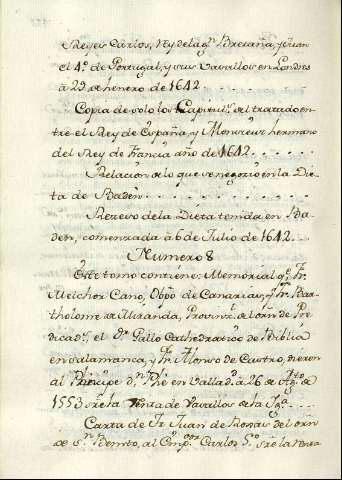 Reyes Carlos, Rey de la gn. Bretaña, y Juan
el 4º. de Portugal, y sus Vasallos en Londres
à 29 de henero de 1642
Copia de solo los Capitul.s del tratado en
tre el Rey de España, y Monsieur hermano
del Rey de Francia año de 1642.
Relacion de lo que se negoció en la Die
ta de Baden
Recreso de la Dieta tenida en Ba
den, comenzada à 6 de Julio de 1642.
Numero 8
Este tomo contiene: Memorial qe. Fr.
Melchor Cano, Obpo de Canarias, y Fr. Bar
tholome de Miranda, Provinl. del orn de Pre
dicads. el Dr. Gallo Cathedratico de Biblia
en Salamanca, y Fr. Alonso de Castro, dieron
al Principe Dn. Phe en Vallad. à 26 de Agto. de
1553 sre la Venta de Vasallos de la Iga.
Carta de Fr. Juan de Robles del orn
de Sn. Benito, al Empor. Carlos 5º. sre la Venta